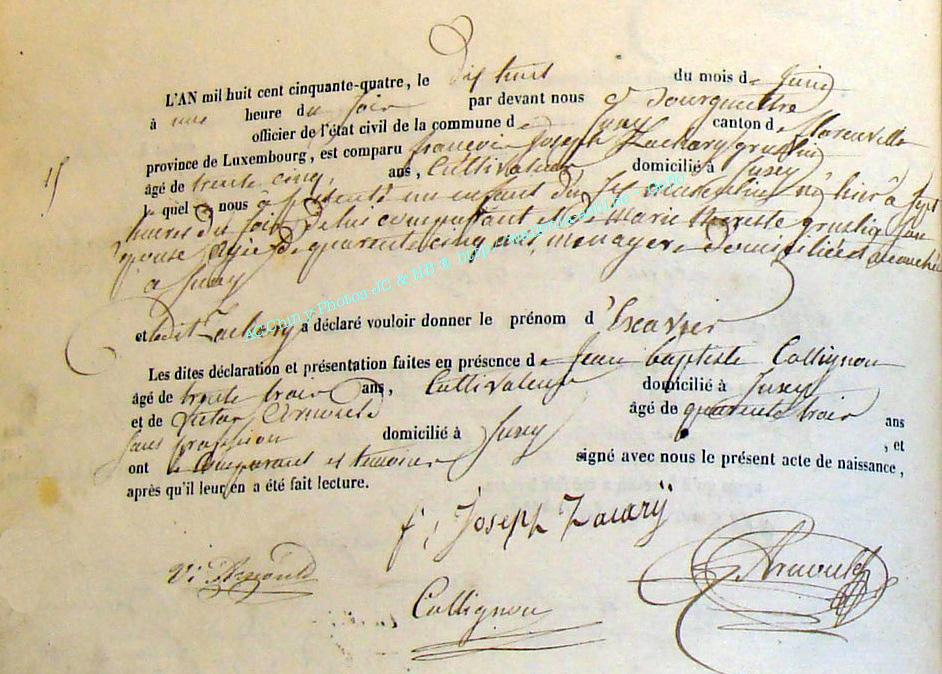 L'AN mil huit cent cinquante-quatre, le dix huit du mois de Juin
à une heure du soir par devant nous
officier de l'état civil de la commune de Jusey canton d
province de Luxembourg, est comparu françois Joseph Zachary
15
âgé de trente cinq ans, Cultivateur domicilié à Jusey
le quel nous a présenté un enfant du né hier à sept
heures du soir de lui comparant et de Marie therese
épouse agée de quarente cinq ans, menagere domiciliée
a Jusey
et ledit Zachary a déclaré vouloir donner le prénom d'
Les dites déclaration et présentation faites en présence de Jean baptiste Collignon
âgé de trente trois ans, Cultivateur domicilié à Jusey
et de Victor Arnould âgé de quarente trois ans
sans profession domicilié à Jusey , et
ont comparant et temoins signé avec nous le présent acte de naissance,
après qu'il leur en a été fait lecture.
f, Joseph Zacarÿ
Vi Arnould
Arnould
Collignon